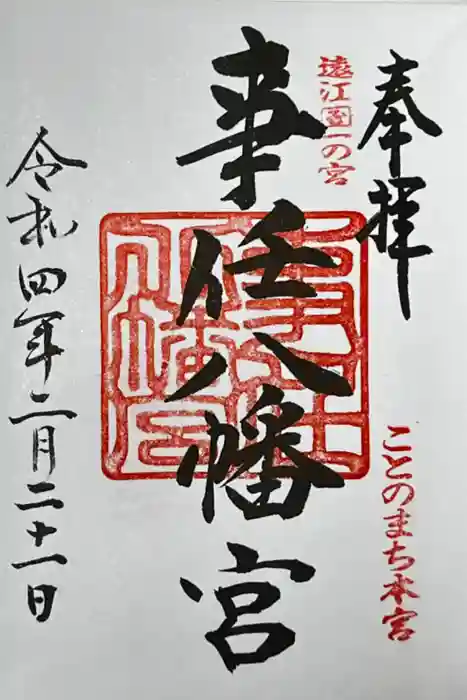 奉拝
ことのまち本宮
遠江國一の宮
事任八幡宮
令和四年二月二十一日